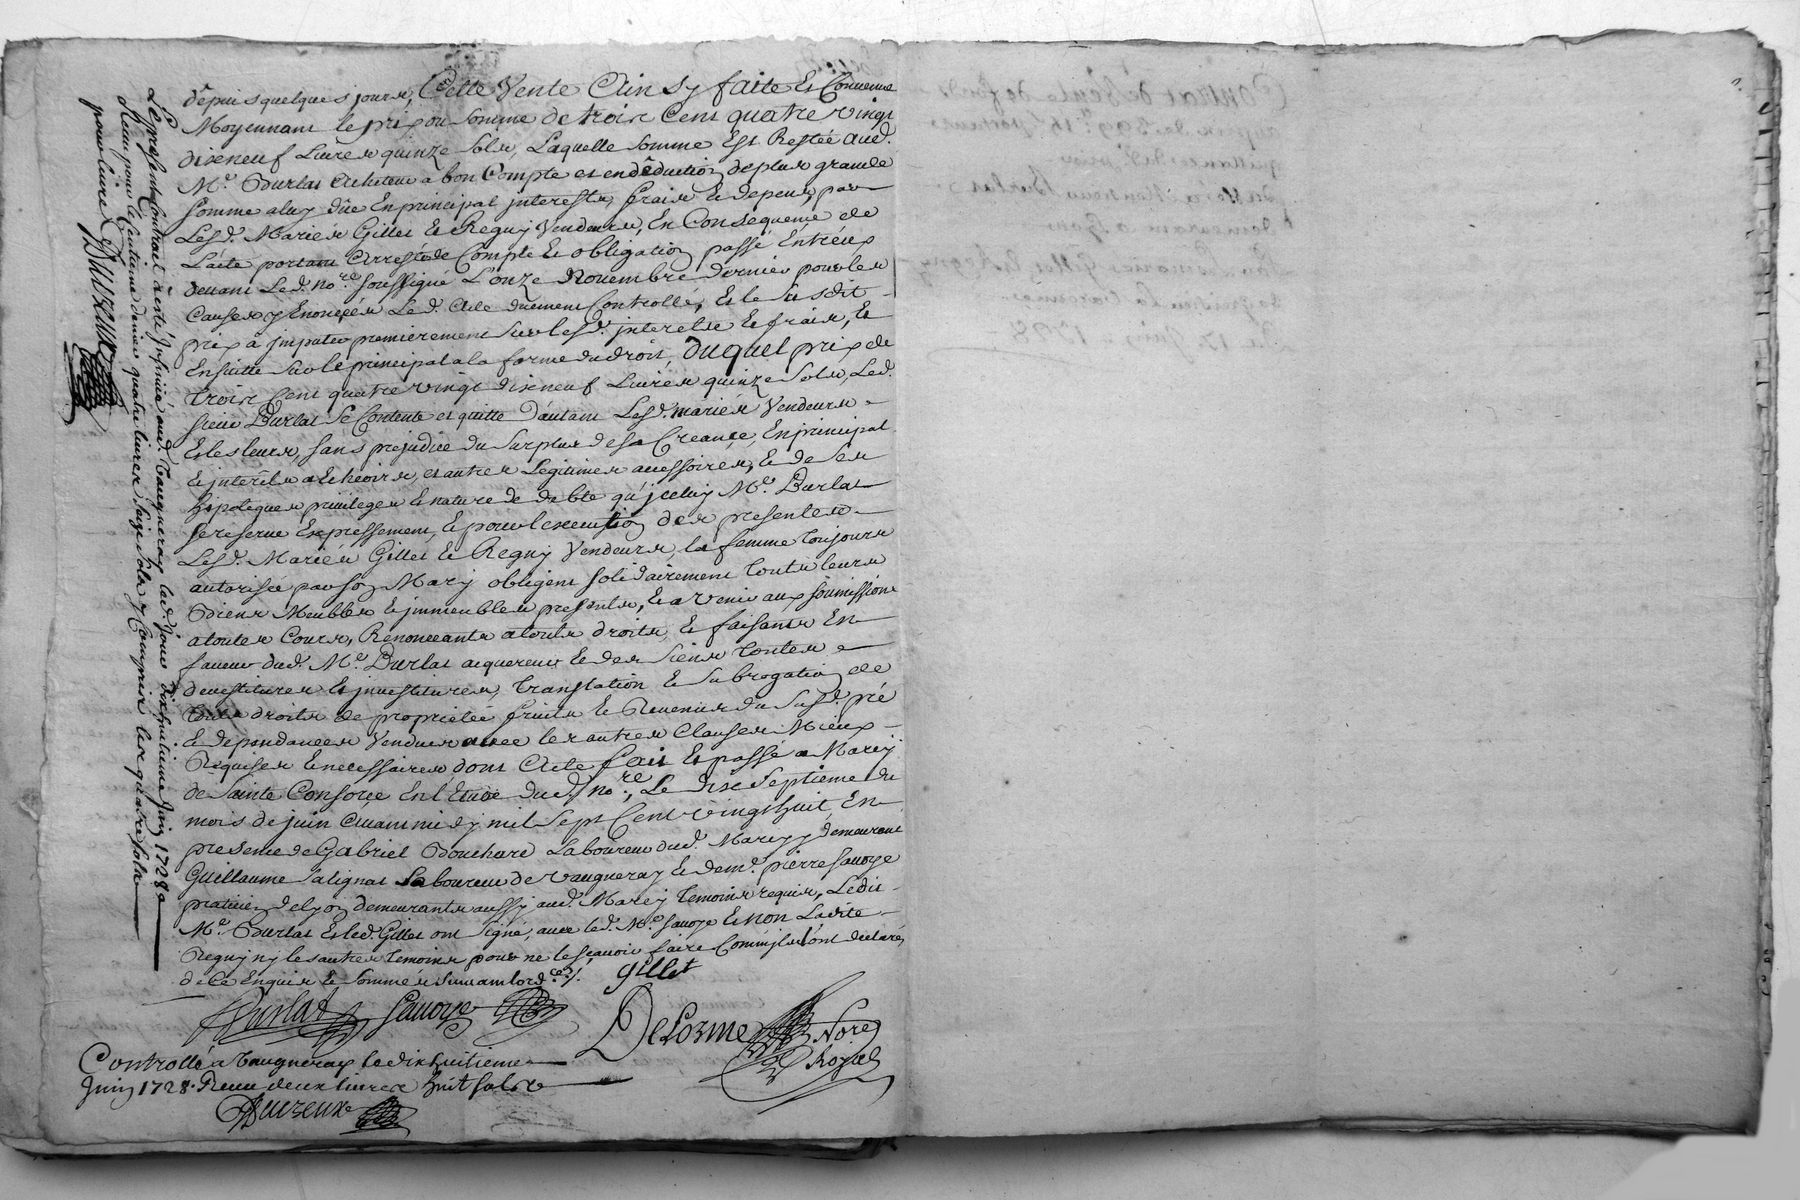 depuis quelques jours, Cette Vente Ainsy faite Et Convenue
Moyennant le prix ou somme de trois Cent quatre vingt
dixneuf Livres quinze Sols, Laquelle somme Est Restée aud.
Me. Burlat Acheteur a bon Compte et en déduction de plus grande
somme a luy dûe En principal interests, frais & depens, par
Lesd. Mariés Gillet & Regny Vendeurs, En Consequence de
L'acte portant Arresté de Compte & obligation passé Entréux
devant Led. nore. soussigné L'onze Novembre dernier pour les
Causes y Enoncées Led. Acte duement Controllé, Et le Susdit
prix a jmputer premierement sur lesd. interetse & frais, &
Ensuitte sur le principal a la forme du droit, Duquel prix de
trois Cent quatre vingt dixneuf Livres quinze Sols, Led.
sieur Burlat Se Contente et quitte D'autant Lesd. mariés Vendeurs
Et les leurs, sans prejudice du Surplus de sa Creance, En principal
& interêts a Echeoirs, et autres Legitimes accessoires, & de Ses
hipoteques privileges & nature de debte qu'jceluy Me. Burlat
se reserve Expressement, & pour l'execution des presentes
Lesd. Mariés Gillet & Regny Vendeurs, la femme toujours
autorisée par son Mary obligent solidairement touts leurs
Biens Meubles & jmmeubles presents, & a Venir aux soumissions
a toutes Cours, Renonceants a touts droits, & faisants En
faveur dud. Me. Burlat acquereur & des Siens toutes
devestitures & jnvestitures, translation & Subrogation de
touts droits de proprietée fruits & Revenus du Susd. pré
& dependances Vendues avec les autres Clauses Mieux
Requises & necessaires dont Acte fait Et passé a Marcy
de Sainte Consorce En l'Etude dud. nore., Le dix Septieme du
mois de juin avant midy mil Sept Cent vingt huit, En
presence de Gabriel Bouchard Laboureur dud. Marcy y demeurant
Guillaume Salignat Laboureur de Vaugneray & de me. pierre savoye
praticien de Lyon demeurants aussy aud. Marcy temoins requis, Ledit
Me. Burlat Et led. Gillet ont Signé, avec led. Me. Savoye Et non Ladite
Regny ny les autres temoins pour ne le sçavoir faire Comm'jls ont declarés
de Ce Enquis & Sommés suivant lordce./.
gillet
Burlat Savoye
DeLorme Nore
Royal
Controllé a Vaugneray le dix huitieme
Juin 1728. Reçu deux livres huit sols
Duvreux
Le present Contract a esté Insinué aud. Vaugneray led. jour dixhuitieme Juin 1728
& Reçu pour le Centieme denier quatre livres Seize Sols y Compris les quatre sols
pour livre Duvreux